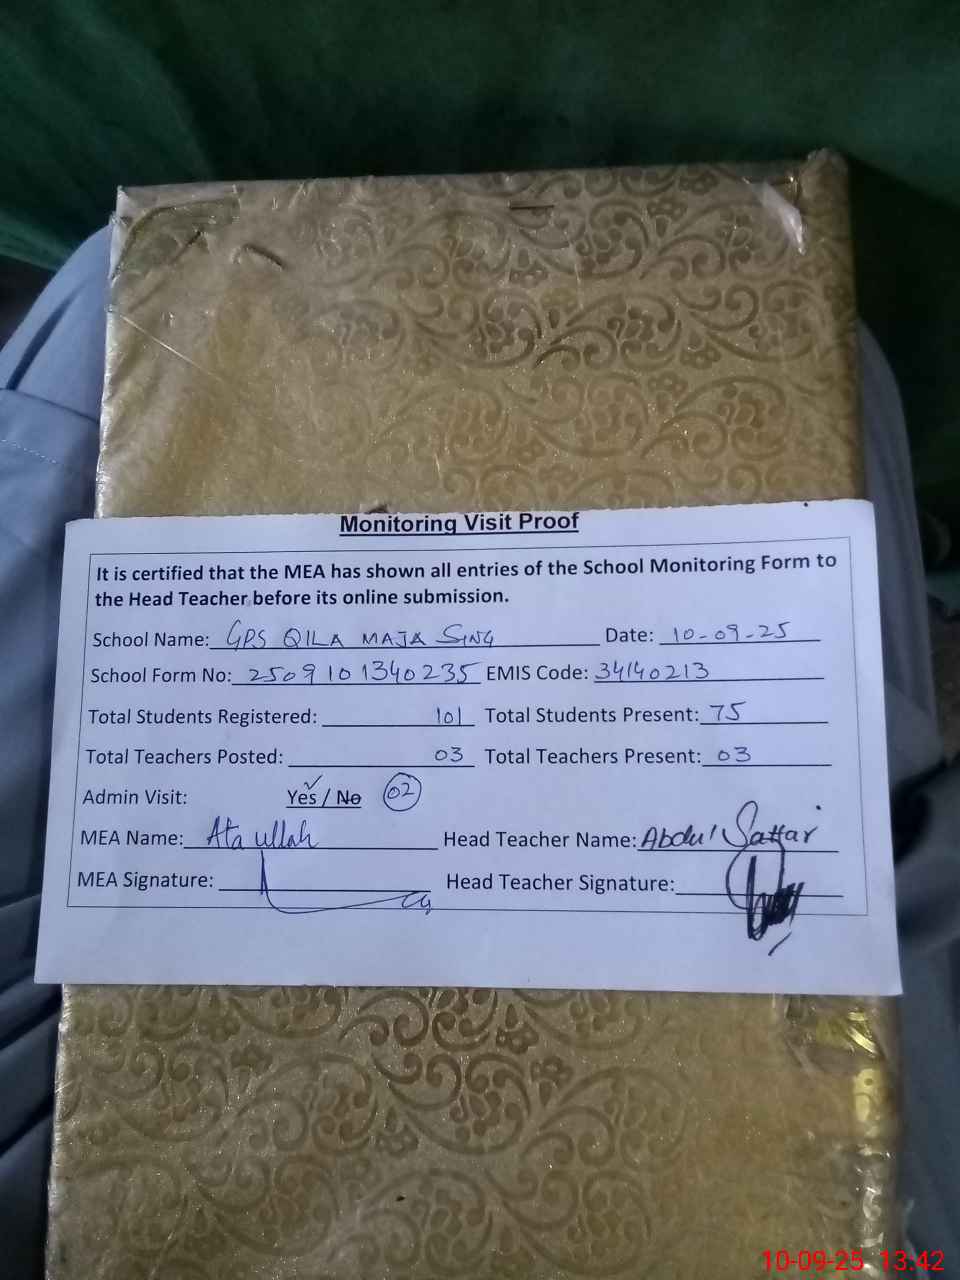 Monitoring Visit Proof
It is certified that the MEA has shown all entries of the School Monitoring Form to
the Head Teacher before its online submission.
School Name: GPS QILA MAJA SING Date: 10-09-25
School Form No: 2509101340235 EMIS Code: 34140213
Total Students Registered: 101 Total Students Present: 75
Total Teachers Posted: 03 Total Teachers Present: 03
Admin Visit: Yes / No 02
MEA Name: Ata ullah Head Teacher Name: Abdul Sattar
MEA Signature: Head Teacher Signature:
10-09-25 13:42